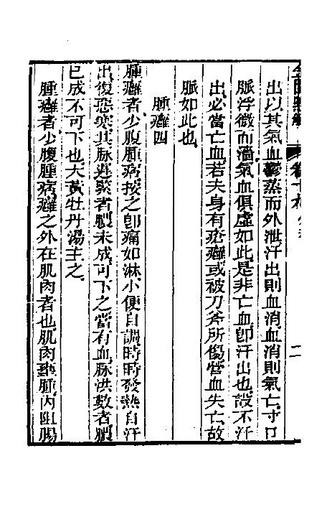 出以其氣血鬱蒸而外泄汗出則血消血消則氣亡寸口
脈浮微而濇氣血俱虛如此是非亡血卽汗出也設不汗
出必當亡血若夫身有瘡癰或被刀斧所傷營血失亡故
脈如此也
腫癰四
腫癰者少腹腫痞按之卽痛如淋小便自調時時發熱自汗
出復惡寒其脈遲緊者膿未成可下之當有血脈洪數者膿
已成不可下也大黃牡丹湯主之
腫癰者少腹腫痞癰之外在肌肉者也肌肉臃腫內阻腸